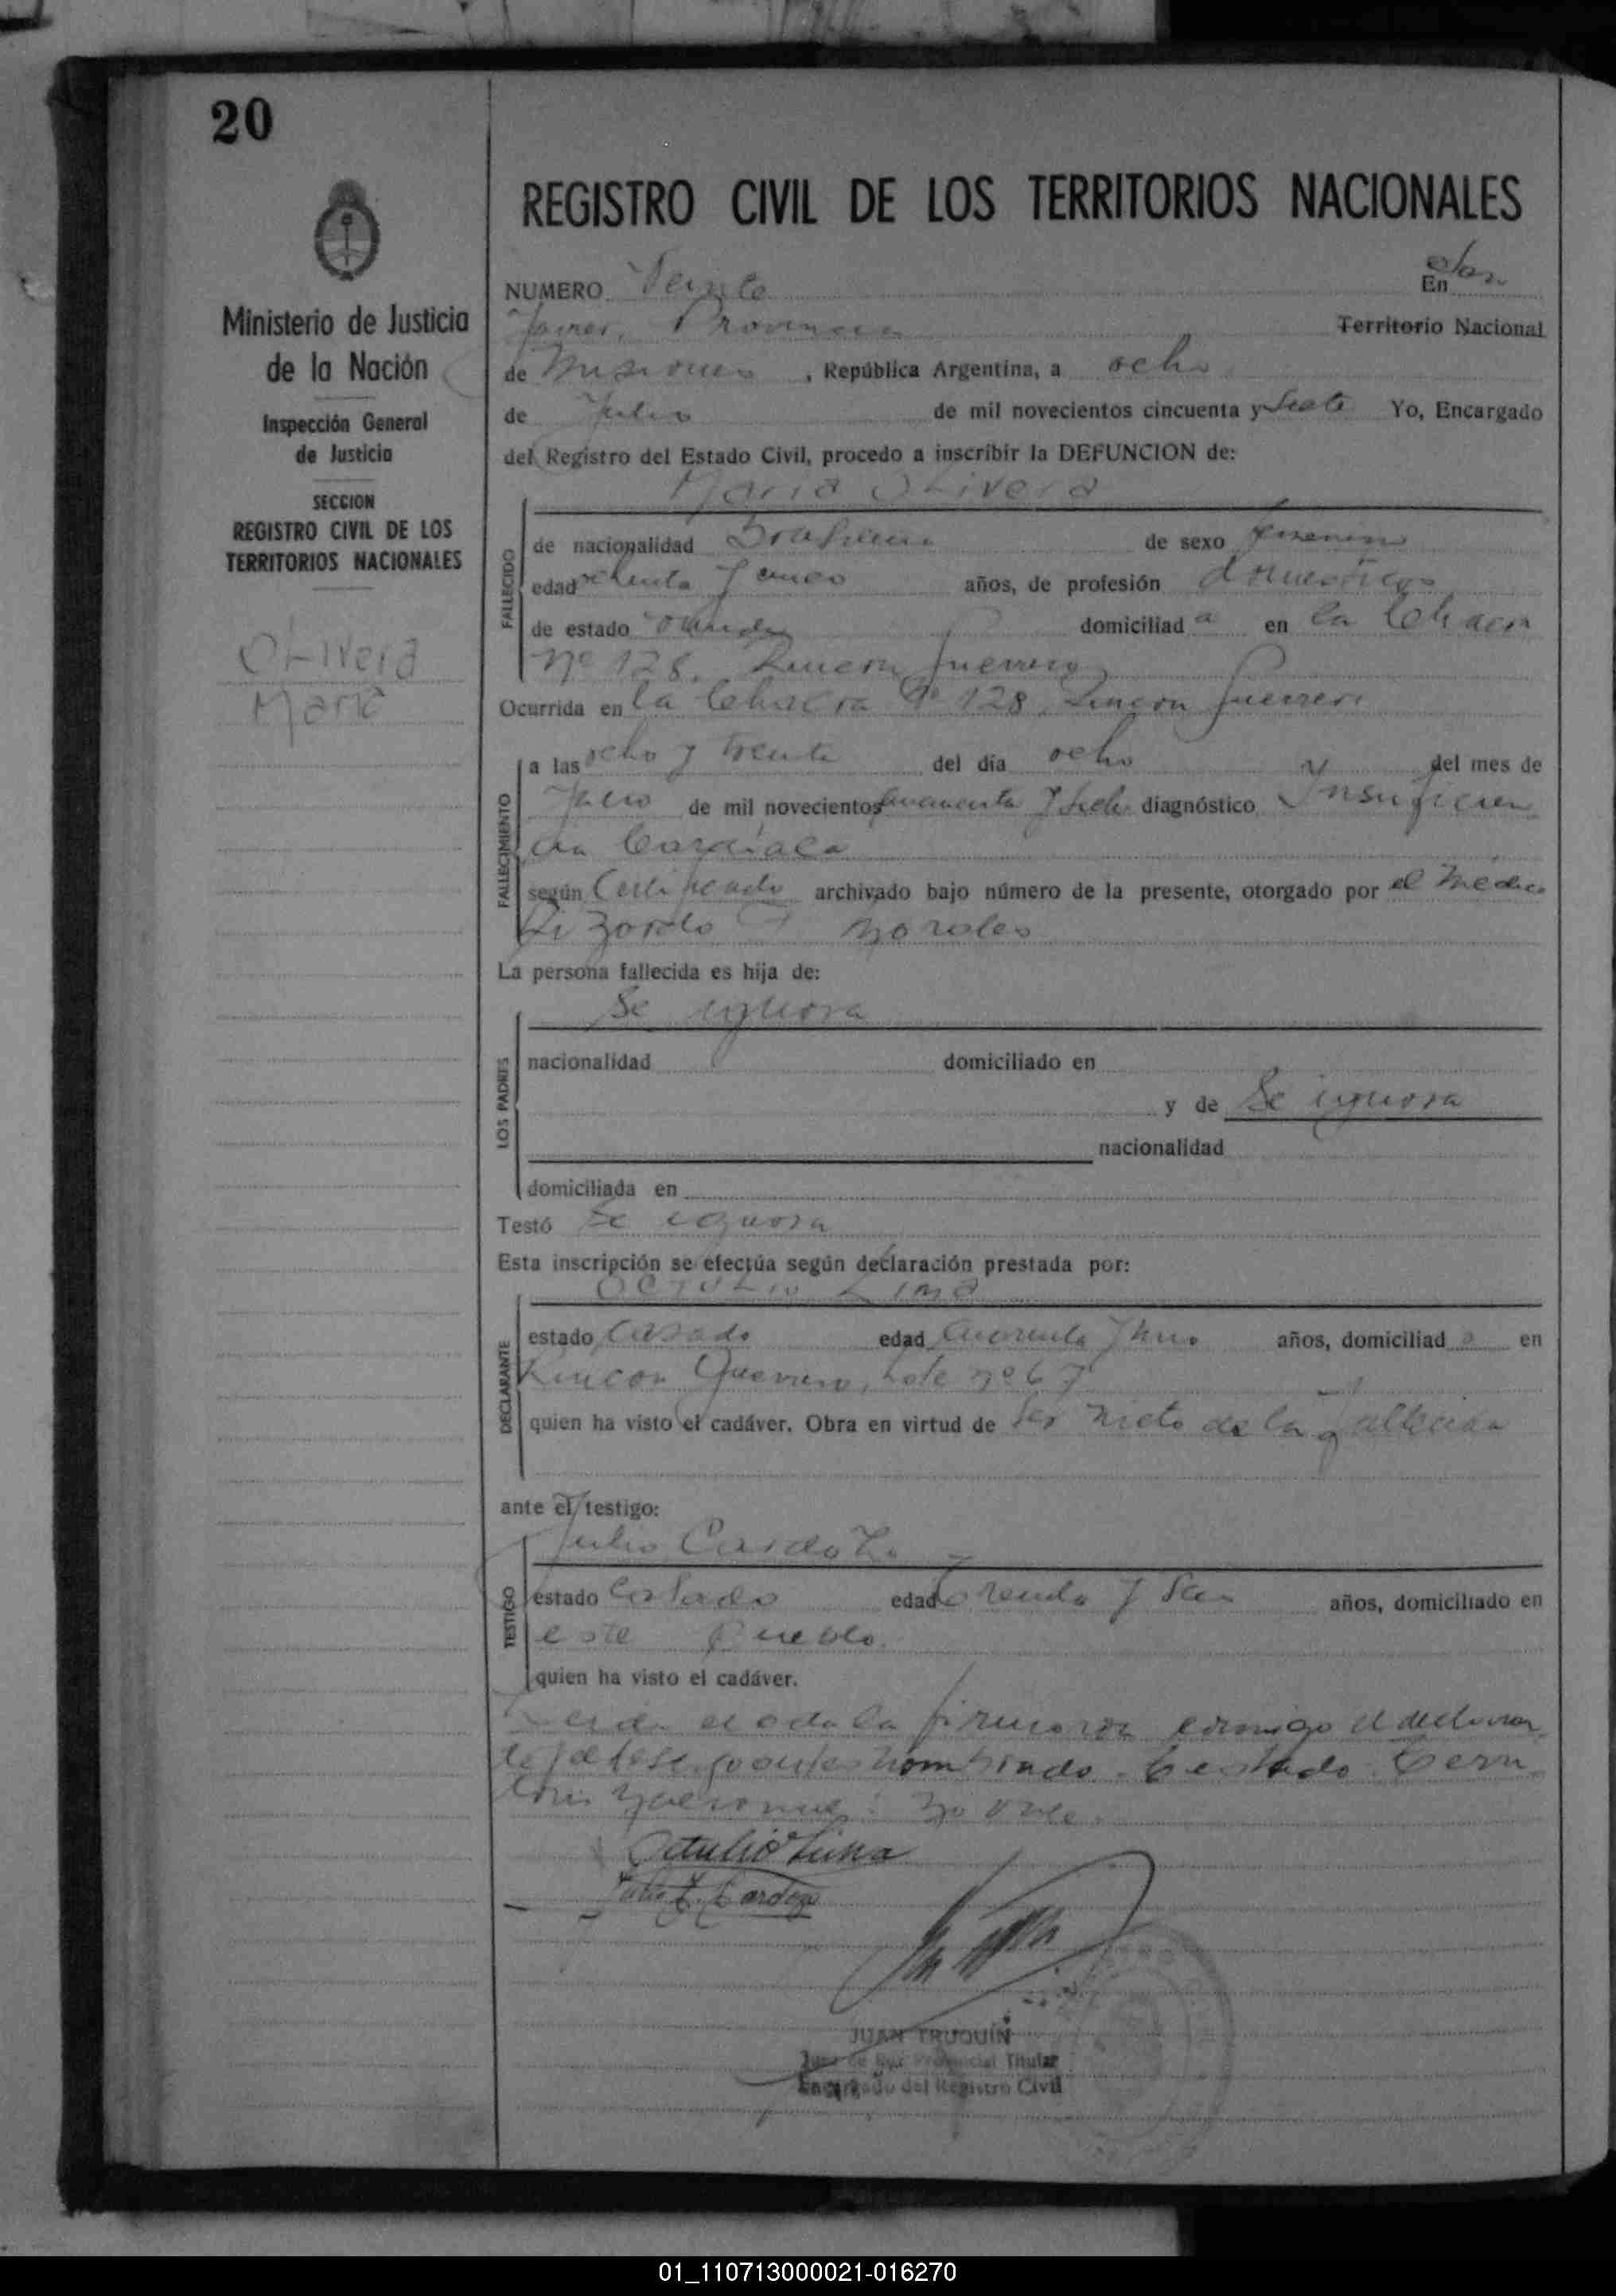 20
Ministerio de Justicia
de la Nación
Inspección General
de Justicia
SECCION
REGISTRO CIVIL DE LOS
TERRITORIOS NACIONALES
Olivera
Maria
REGISTRO CIVIL DE LOS TERRITORIOS NACIONALES
NUMERO Veinte En San
Javier, Provincia Territorio Nacional
de Misiones, República Argentina, a ocho
de Julio de mil novecientos cincuenta y Siete Yo, Encargado
del Registro del Estado Civil, procedo a inscribir la DEFUNCION de:
Maria Olivera
FALLECIDO
de nacionalidad Brasilena de sexo femenino
edad ochenta y cinco años, de profesión domesticas
de estado viuda domiciliad a en la Chacra
Nº 128, Rincon Guerrero
Ocurrida en la Chacra Nº 128, Rincon Guerrero
FALLECIMIENTO
a las ocho y treinta del día ocho del mes de
Julio de mil novecientos cincuenta y siete diagnóstico Insuficien
cia Cardiaca
según Certificado archivado bajo número de la presente, otorgado por el Médico
Lizardo Morales
La persona fallecida es hija de:
Se ignora
LOS PADRES
nacionalidad domiciliado en
y de Se ignora
nacionalidad
domiciliada en
Testó Se ignora
Esta inscripción se efectúa según declaración prestada por:
Octulio Lima
DECLARANTE
estado Casado edad Cuarenta y años, domiciliad o en
Rincon Guerrero, Lote nº 67
quien ha visto el cadáver. Obra en virtud de ser nieto de la fallecida
ante el testigo:
Julio Cardozo
TESTIGO
estado Casado edad treinta y seis años, domiciliado en
este Pueblo.
quien ha visto el cadáver.
Leida el acta la firmaron conmigo el declaran
te y el testigo antes nombrado. Testado:
no vale.
Octulio Lima
Julio Z. Cardozo
JUAN TRUQUIN
Juez de Paz Provincial Titular
Encargado del Registro Civil
01_110713000021-016270